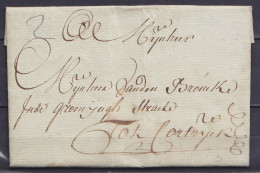 Mijnheer
Mijnheer Vanden Broucke
inde groeninghe straete
Tot Cortryck